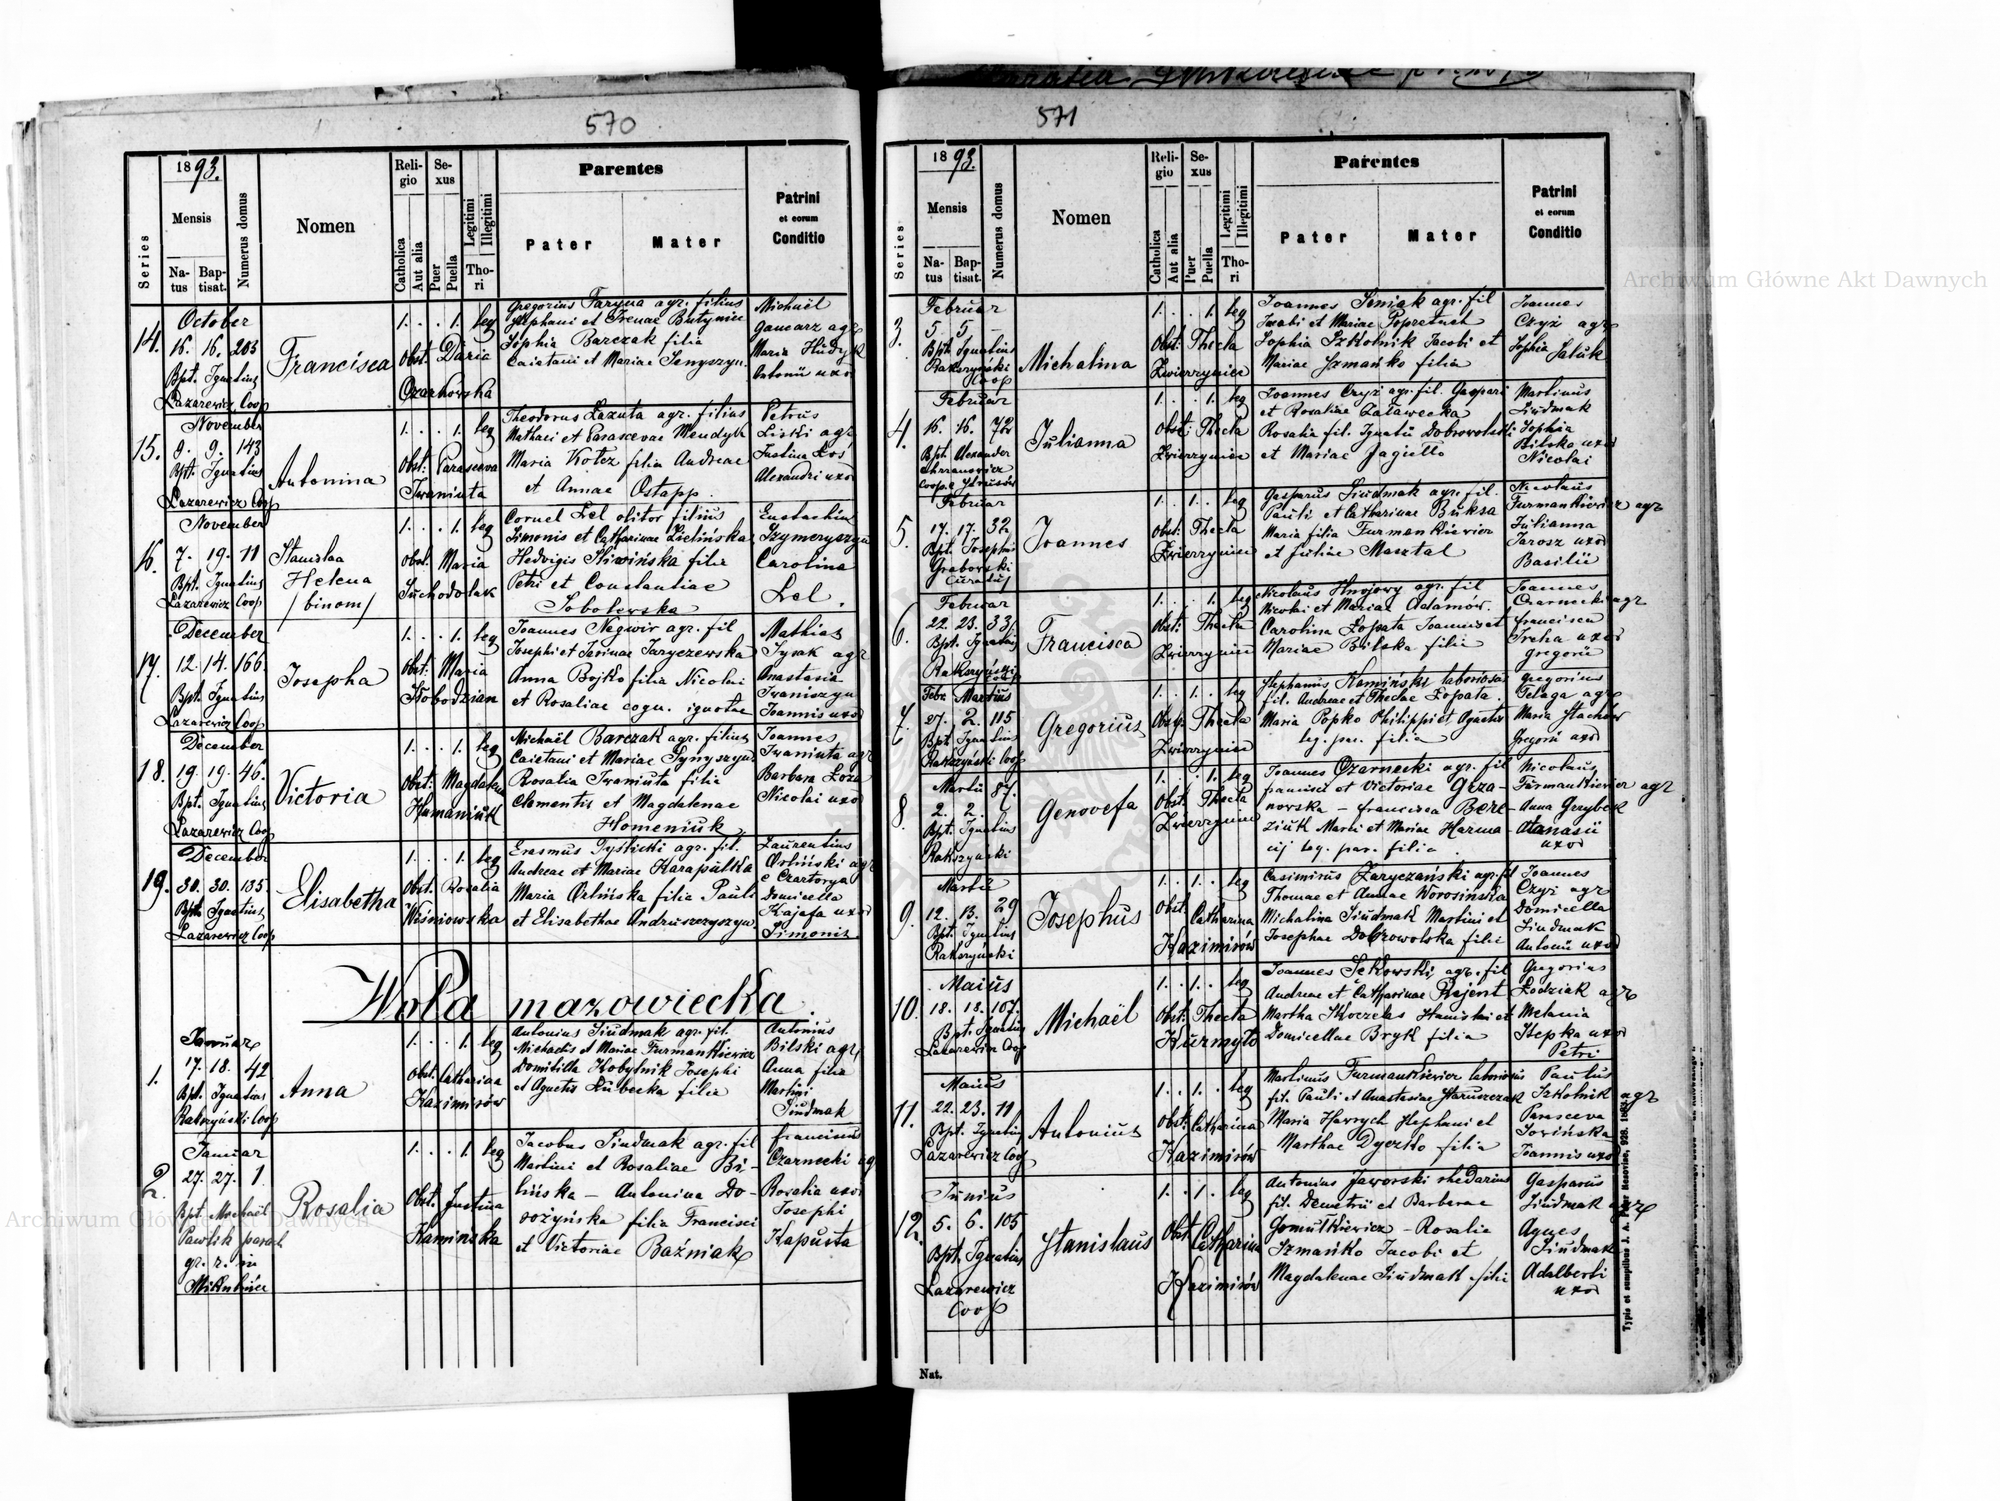 570
1893.
Series
Mensis
Natus
Baptisat.
Numerus domus
Nomen
Religio
Catholica
Aut alia
Sexus
Puer
Puella
Legitimi
Illegitimi
Thori
Parentes
Pater
Mater
Patrini
et eorum
Conditio
14.
October
16. 16. 203
Bpt. Ignatius
Lazarewicz Coop
Francisca
1. . . 1. leg
Obst. Daria
Gregorius Faryna agr. filius
Stephani et Irenae Butyniec
Sophia Barczak filia
Caietani et Mariae Senyszyn.
Michaël
Gancarz agr
Maria Hudyk
Antonii uxor
15.
November
9. 9. 143
Bpt. Ignatius
Lazarewicz Coop
Antonina
1. . . 1. leg
Obst: Parasceva
Iwaniuta
Theodorus Lazuta agr. filius
Mathaei et Parascevae Mendyk
Maria Kotez filia Andreae
et Annae Ostapp.
Petrus
Liski agr
Justina Los
Alexandri uxor
16.
November
7. 19. 11
Bpt. Ignatius
Lazarewicz Coop
Stanislaa
Helena
/binom/
1. . . 1. leg
Obst. Maria
Suchodolak
Cornel Lel olitor filius
Simonis et Catharinae Zielińska
Hedvigis Śliwińska filia
Petri et Constantiae
Sobolewska
Eustachius
Szymeryszyn
Carolina
Lel.
17.
December
12. 14. 166.
Bpt. Ignatius
Lazarewicz Coop
Josepha
1. . . 1. leg
Obst. Maria
Słobodzian
Joannes Negwir agr. fil
Josephi et Tarczewska
Anna Bojko filia Nicolai
et Rosaliae cogn. ignotae
Mathias
Sysak agr
Anastasia
Iwaniszyn
Joannis uxor
18.
December
19. 19. 46.
Bpt. Ignatius
Lazarewicz Coop
Victoria
1. . . 1. leg
Obst. Magdalena
Humaniuk
Michaël Barczak agr. filius
Caietani et Mariae Synyszyn
Rosalia Iwaniuta filia
Clementis et Magdalenae
Homeniuk
Joannes
Iwaniuta agr
Barbara Loza
Nicolai uxor
19.
December
30. 30. 135.
Bpt. Ignatius
Lazarewicz Coop
Elisabetha
1. . . 1. leg
Obst. Rosalia
Wiśniowska
Erasmus Tyślicki agr. fil.
Andreae et Mariae Karapulka
Maria Orlińska filia Pauli
et Elisabethae Andruszczyszyn
Laurentius
Orliński agr
e Czartorya
Domicella
Kajafa uxor
Simonis.
Wola mazowiecka.
1.
Januar
17. 18. 42
Bpt. Ignatius
Rakszyński Coop
Anna
1. . . 1. leg
Obst. Catharina
Kazimirów
Antonius Siudmak agr. fil.
Michaelis et Mariae Furmankiewicz
Domitilla Kobylnik Josephi
et Agnetis Kubecka filia
Antonius
Bilski agr,
Anna filia
Martini
Siudmak
2.
Januar
27. 27. 1.
Bpt. Michaël
Pawlik paroch
gr. r. in
Mikulińce
Rosalia
1. . . 1. leg
Obst. Justina
Kamińska
Jacobus Siudmak agr. fil
Martini et Rosaliae Bi-
lińska — Antonina Do-
rożyńska filia Francisci
et Victoriae Baźniak
Franciscus
Czarnecki agr
Rosalia uxor
Josephi
Kapusta
571
1893.
Series
Mensis
Natus
Baptisat.
Numerus domus
Nomen
Religio
Catholica
Aut alia
Sexus
Puer
Puella
Legitimi
Illegitimi
Thori
Parentes
Pater
Mater
Patrini
et eorum
Conditio
3.
Februar
5. 5. —
Bpt. Ignatius
Rakszyński
Coop
Michalina
1. . . 1. leg
Obst: Thecla
Zwierzyniec
Joannes Seniak agr. fil
Jacobi et Mariae
Sophia Szkolnik Jacobi et
Mariae Szmańko filia
Joannes
Czyż agr
Sophia
4.
Februar
16. 16. 72
Bpt. Alexander
Julianna
1. . . 1. leg
Obst: Thecla
Zwierzyniec
Joannes Czyż agr. fil. Gaspari
et Rosaliae Zalawecka
Rosalia fil. Ignatii Dobrowolski
et Mariae Jagiełło
Martinus
Siudmak
Sophia
Bilska uxor
Nicolai
5.
Februar
17. 17. 32
Bpt. Josephus
Grabowski
Curatus
Joannes
1. . 1. . leg
Obst: Thecla
Zwierzyniec
Gasparus Siudmak agr. fil.
Pauli et Catharinae Buksa
Maria filia Furmankiewicz
et Juliae Masztal
Nicolaus
Furmankiewicz agr
Julianna
Jarosz uxor
Basilii
6.
Februar
22. 23. 33
Bpt. Ignatius
Rakszyński
Francisca
1. . . 1. leg
Obst: Thecla
Zwierzyniec
Nicolaus Hnojowy agr. fil
Nicolai et Mariae Adamów.
Carolina Łopata Joannis et
Mariae Bilska filia
Joannes
Czarnecki agr
Francisca
Treha uxor
Gregorii
7.
Febr. Martius
27. 2. 115
Bpt. Ignatius
Rakszyński Coop
Gregorius
1. . 1. . leg
Obst. Thecla
Zwierzyniec
Stephanus Kamiński laboriosus
fil. Andreae et Theclae Łopata.
Maria Popko Philippi et Agnetis
leg. par. filia
Gregorius
Pelaga agr
Maria Stachów
Gregorii uxor
8.
Martii 87.
2. 2.
Bpt. Ignatius
Rakszyński
Genovefa
1. . . 1. leg
Obst. Thecla
Zwierzyniec
Joannes Czarnecki agr. fil
Francisci et Victoriae Grza-
nowska — Francisca Bere-
ziuk Marci et Mariae Harma-
cij leg. par. filia.
Nicolaus
Furmankiewicz agr
Anna Grzybek
Atanasii
uxor
9.
Martii
12. 13. 29
Bpt. Ignatius
Rakszyński
Josephus
1. . 1. . leg
Obst. Catharina
Kazimirów
Casimirus Zaryczański agr. fil
Thomae et Annae Worosińska
Michalina Siudmak Martini et
Josephae Dobrowolska filia
Joannes
Czyż agr
Domicella
Siudmak
Antonii uxor
10.
Maius
18. 18. 107.
Bpt. Ignatius
Lazarewicz Coop
Michaël
1. . 1. . leg
Obst. Thecla
Kurmyło
Joannes Sękowski agr. fil
Andreae et Catharinae Rejent
Martha Koczelas Stanislai et
Domicellae Bryk filia
Gregorius
Łodziak agr
Melania
Stepka uxor
Petri
11.
Maius
22. 23. 11
Bpt. Ignatius
Lazarewicz Coop
Antonius
1. . 1. . leg
Obst. Catharina
Kazimirów
Martinus Furmankiewicz laboriosus
fil. Pauli et Anastasiae Staruszczak
Maria Hawrych Stephani et
Marthae Dyczko filia
Paulus
Szkolnik agr
Parasceva
Sowińska
Joannis uxor
12.
Junius
5. 6. 105
Bpt. Ignatius
Lazarewicz
Coop
Stanislaus
1. . 1. . leg
Obst. Catharina
Kazimirów
Antonius Jaworski rhedarius
fil. Demetrii et Barbarae
Gomułkiewicz — Rosalia
Szmańko Jacobi et
Magdalenae Siudmak filia
Gasparus
Siudmak agr
Agnes
Siudmak
Adalberti
uxor
Nat.
Archiwum Główne Akt Dawnych
Archiwum Główne Akt Dawnych